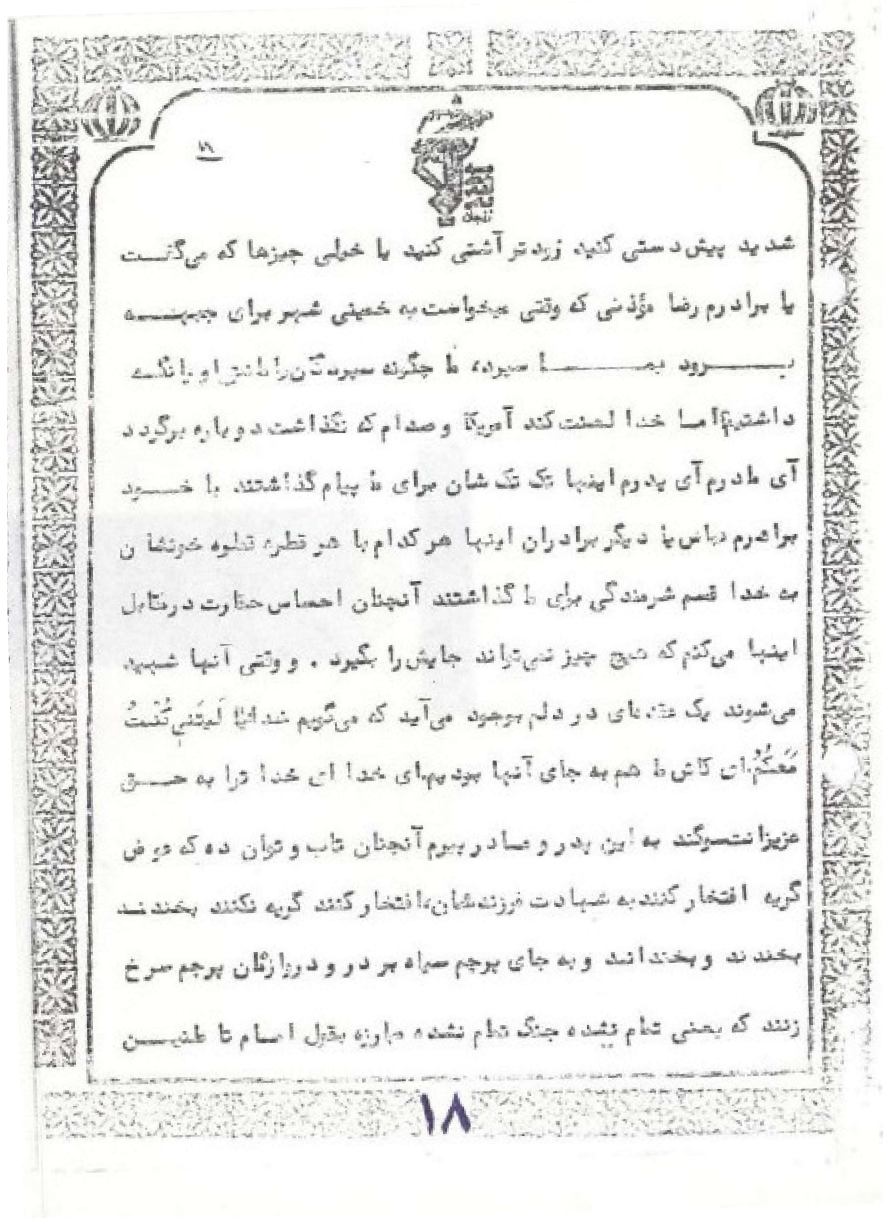 شدید پیش‌دستی کنید زودتر آشتی کنید یا خیلی چیزها که می‌گفت
یا برادرم رضا مؤذنی که وقتی میخواست به خمینی شهر برای جبهه
برود بما سپرد، ما چگونه سپرده‌تان را
داشتیم اما خدا لعنت کند آمریکا و صدام که نگذاشت دوباره برگردد
آی مادرم آی پدرم اینها تک تک شان برای ما پیام گذاشتند با خود
برادرم عباس یا دیگر برادران اینها هر کدام با هر قطره قطره خونشان
به خدا قسم شرمندگی برای ما گذاشتند آنچنان احساس حقارت در مقابل
اینها می‌کنم که هیچ چیز نمی‌تواند جایش را بگیرد . و وقتی آنها شهید
می‌شوند یک عقده‌ای در دلم بوجود می‌آید که می‌گویم خدایا لَیتَنی کُنتُ
مَعَکُم ای کاش ما هم به جای آنها بودیم ای خدا ای خدا ترا به حق
عزیزانت سوگند به این پدر و مادر پیرم آنچنان تاب و توان ده که عوض
گریه افتخار کنند به شهادت فرزندشان، افتخار کنند گریه نکنند بخندند
بخندند و بخندانند و به جای پرچم سیاه بر در و دروازه‌تان پرچم سرخ
زنند که یعنی تمام نشده جنگ تمام نشده مبارزه بقول امام تا طنین
۱۸